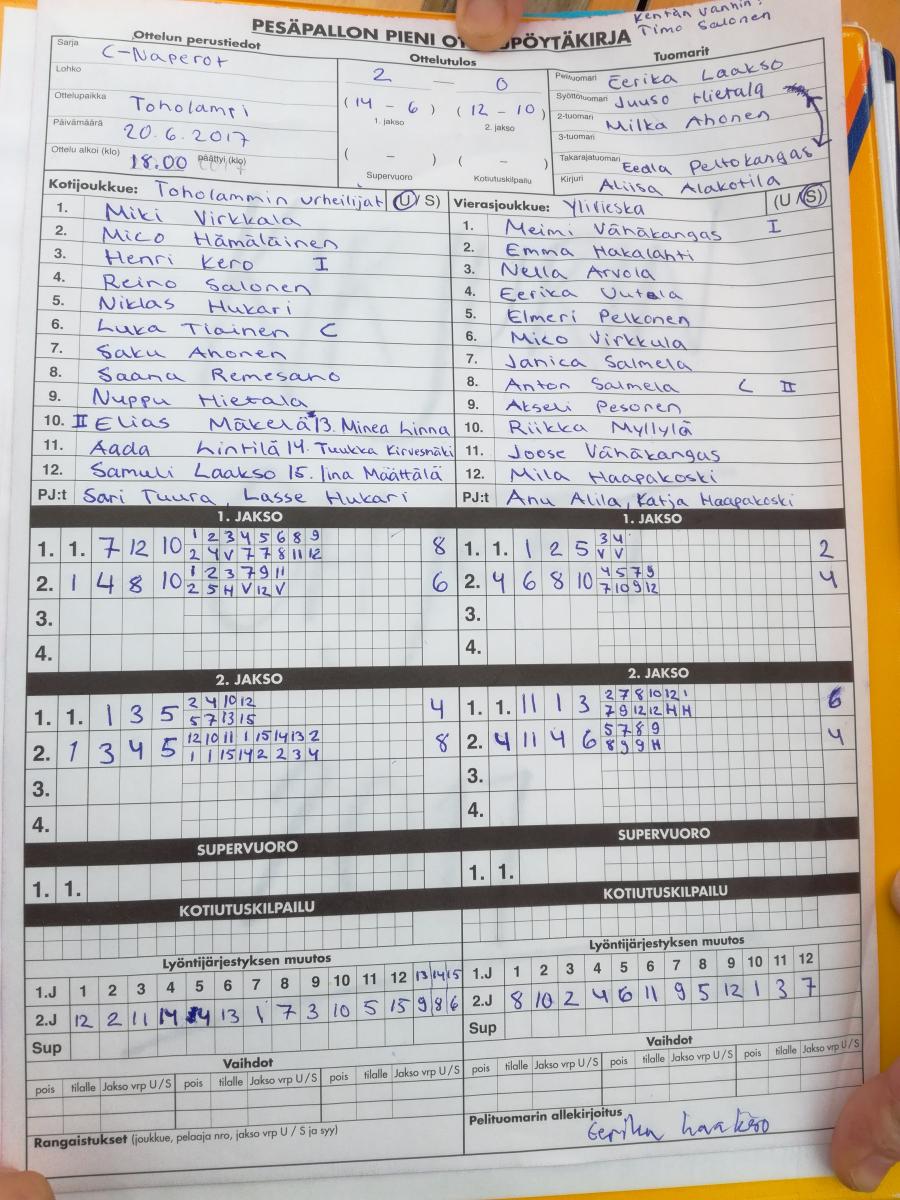 Kentän vanhin:
Timo Salonen
PESÄPALLON PIENI OTTELUPÖYTÄKIRJA
Ottelun perustiedot
Sarja C-Naperot
Lohko
Ottelupaikka Toholampi
Päivämäärä 20.6.2017
Ottelu alkoi (klo) 18.00 päättyi (klo)
Ottelutulos
2 — 0
(14 - 6) (12 - 10)
1. jakso 2. jakso
( - ) ( - )
Supervuoro Kotiutuskilpailu
Tuomarit
Pelituomari Eerika Laakso
Syöttötuomari Juuso Hietala
2-tuomari Milka Ahonen
3-tuomari
Takarajatuomari Eedla Peltokangas
Kirjuri Aliisa Alakotila
Kotijoukkue: Toholammin urheilijat (U/S)
1. Miki Virkkala
2. Mico Hämäläinen
3. Henri Kero I
4. Reino Salonen
5. Niklas Hukari
6. Luka Tiainen C
7. Saku Ahonen
8. Saana Remesaho
9. Nuppu Hietala
10. II Elias Mäkelä 13. Minea Linna
11. Aada Lintilä 14. Tuukka Kirvesmäki
12. Samuli Laakso 15. Iina Määttälä
PJ:t Sari Tuura, Lasse Hukari
Vierasjoukkue: Ylivieska (U/S)
1. Meimi Vähäkangas I
2. Emma Hakalahti
3. Nella Arvola
4. Eerika Uutela
5. Elmeri Pelkonen
6. Mico Virkkula
7. Janica Salmela
8. Anton Salmela C II
9. Akseli Pesonen
10. Riikka Myllylä
11. Joose Vähäkangas
12. Mila Haapakoski
PJ:t Anu Alila, Katja Haapakoski
1. JAKSO
1. 1. 7 12 10 1 2 3 4 5 6 8 9 8
2 4 V 7 7 8 11 12
2. 1 4 8 10 1 2 3 7 9 11 6
2 5 H V 12 V
3.
4.
1. JAKSO
1. 1. 1 2 5 3 4 2
V V
2. 4 6 8 10 4 5 7 9 4
7 10 9 12
3.
4.
2. JAKSO
1. 1. 1 3 5 2 4 10 12 4
5 7 13 15
2. 1 3 4 5 12 10 11 1 15 14 13 2 8
1 1 15 14 2 2 3 4
3.
4.
2. JAKSO
1. 1. 11 1 3 2 7 8 10 12 1 6
7 9 12 12 H H
2. 4 11 4 6 5 7 8 9 4
8 9 9 H
3.
4.
SUPERVUORO
1. 1.
SUPERVUORO
1. 1.
KOTIUTUSKILPAILU
KOTIUTUSKILPAILU
Lyöntijärjestyksen muutos
1.J 1 2 3 4 5 6 7 8 9 10 11 12 13 14 15
2.J 12 2 11 14 4 13 1 7 3 10 5 15 9 8 6
Sup
Lyöntijärjestyksen muutos
1.J 1 2 3 4 5 6 7 8 9 10 11 12
2.J 8 10 2 4 6 11 9 5 12 1 3 7
Sup
Vaihdot
pois tilalle Jakso vrp U / S pois tilalle Jakso vrp U / S pois tilalle Jakso vrp U / S
Vaihdot
pois tilalle Jakso vrp U / S pois tilalle Jakso vrp U / S pois tilalle Jakso vrp U / S
Rangaistukset (joukkue, pelaaja nro, jakso vrp U / S ja syy)
Pelituomarin allekirjoitus
Eerika Laakso